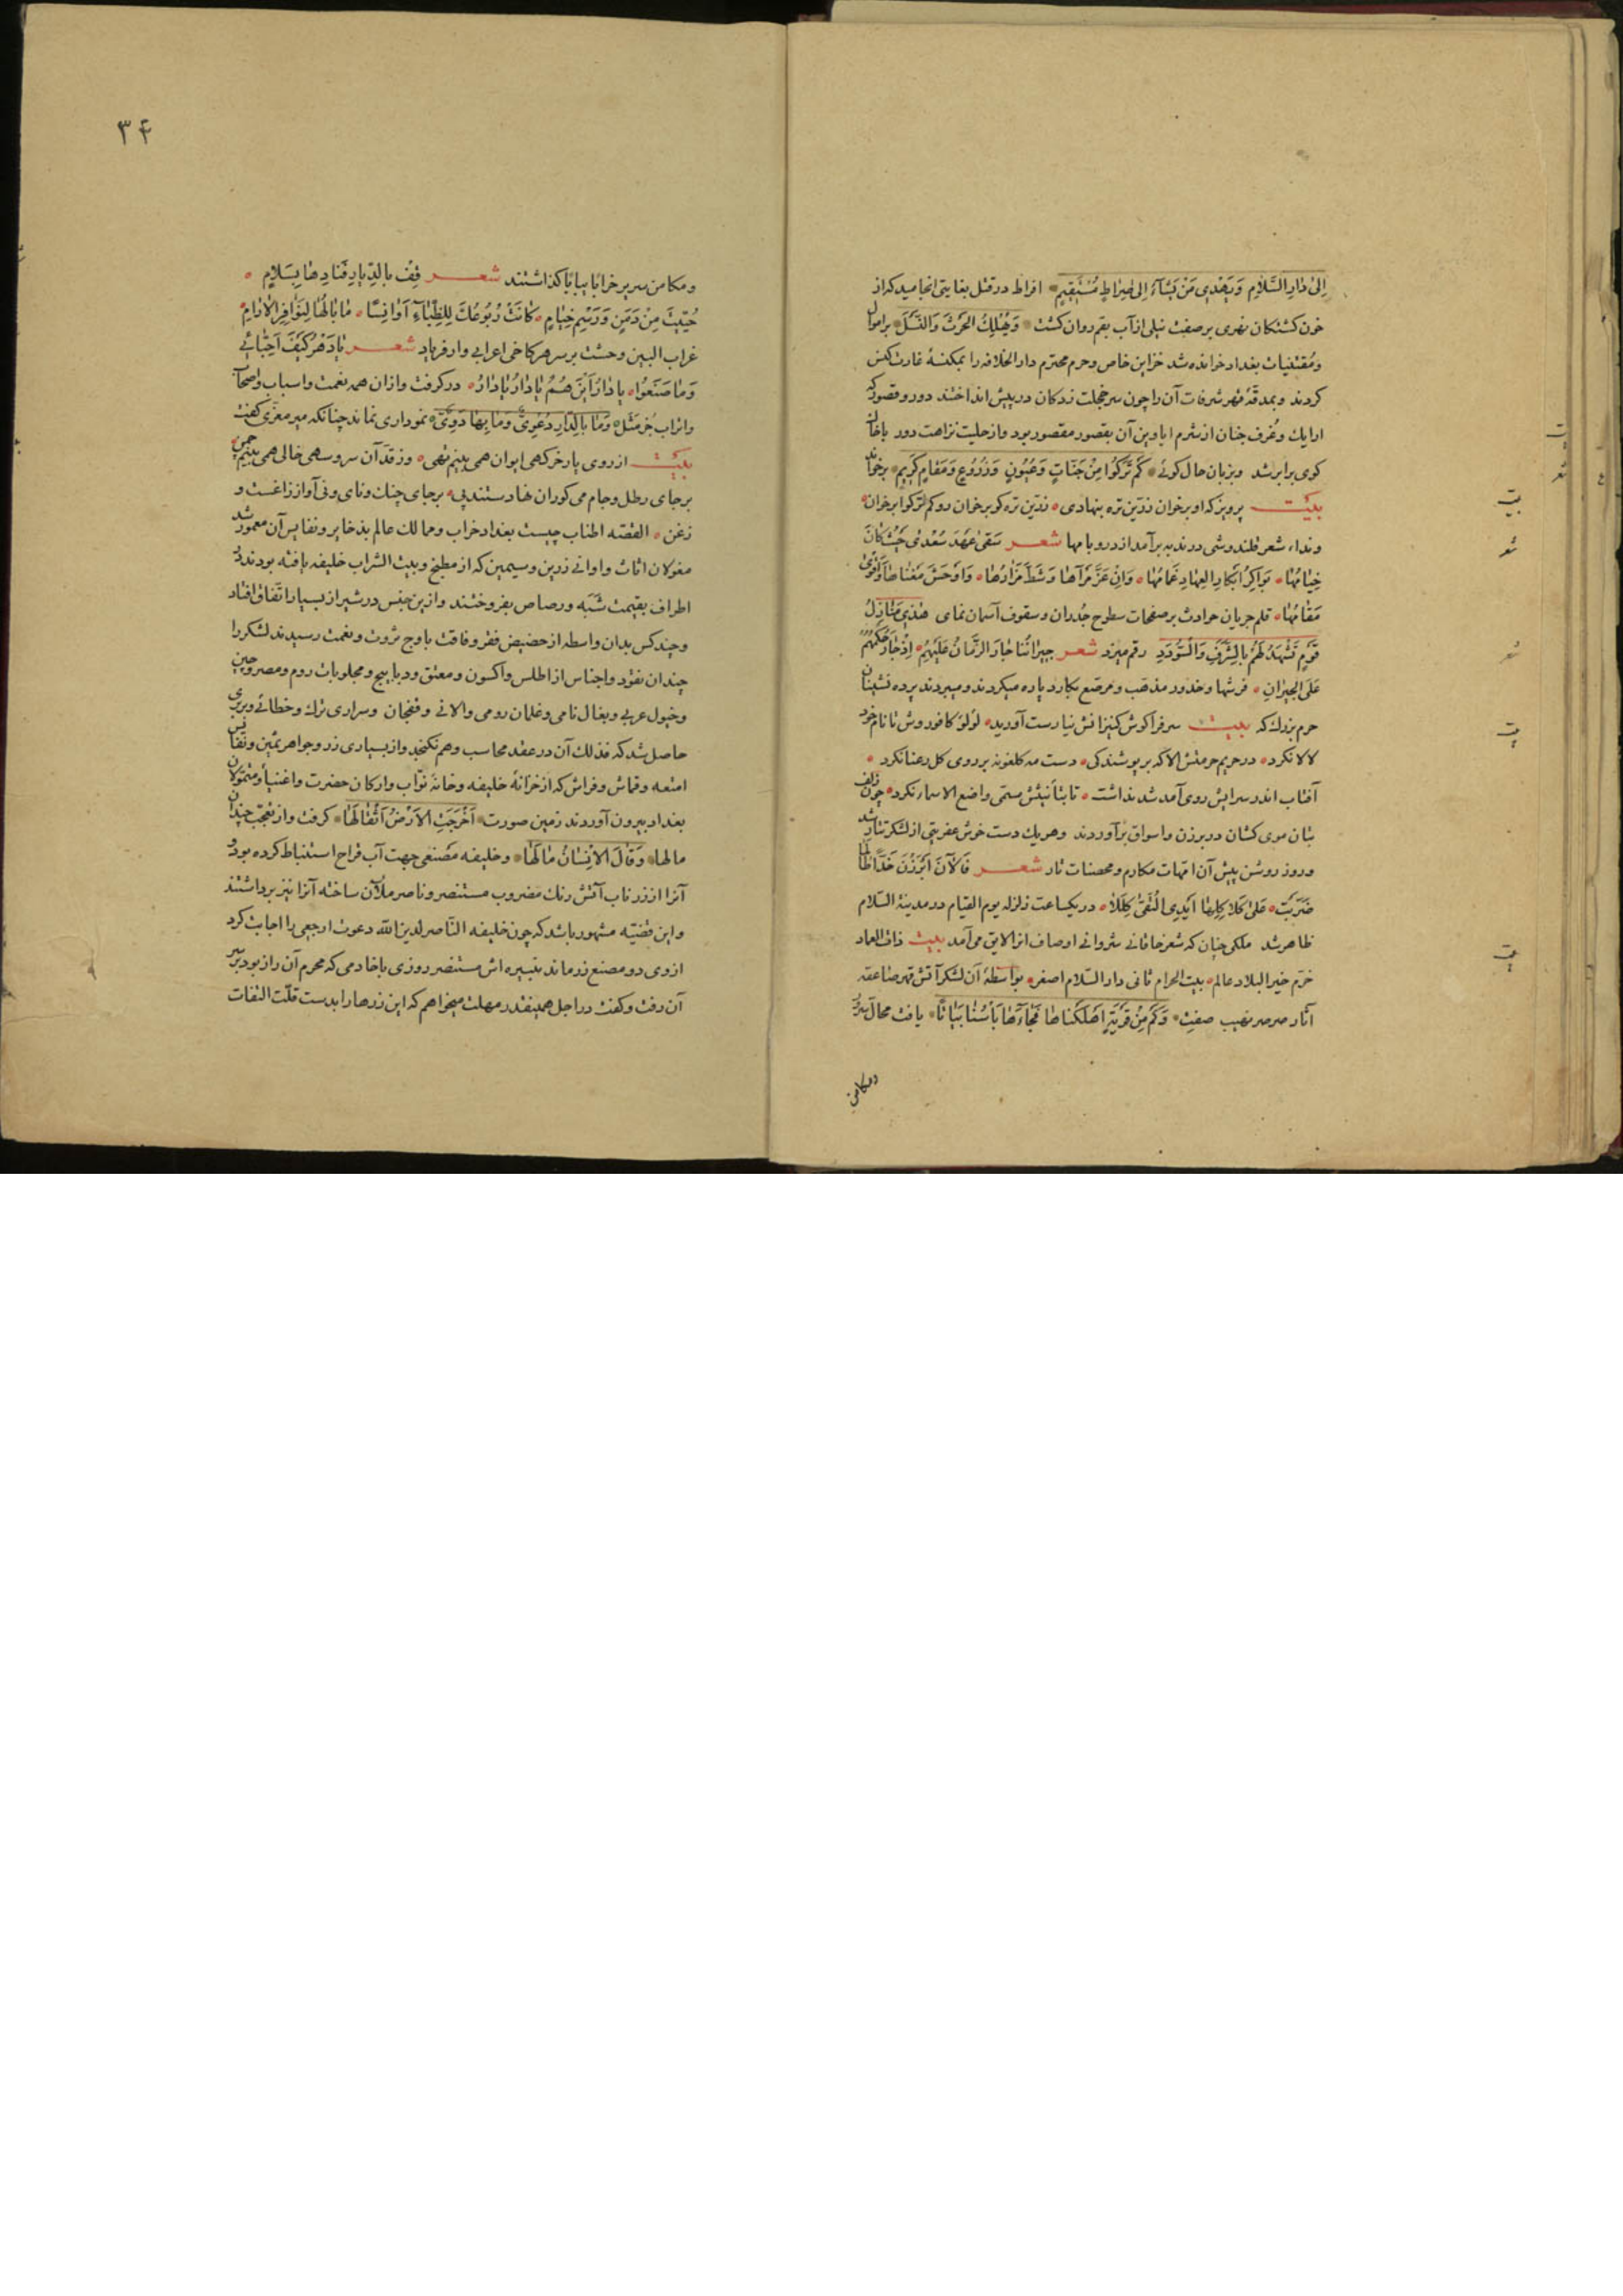 اِلیٰ دٰارِ السَّلاٰمِ وَیَهْدٖی مَنْ یَشٰآءُ اِلیٰ صِرٰاطٍ مُسْتَقٖیمٍ افراط در قتل بغایتی انجامید که از
خون کشتکان نهری بر صفت نیلی از آب بقم روان کشت وَیُهْلِكَ الحَرْثَ وَالنَّسْلَ بر اموال
و مُقتنیات بغداد خوانده شد خزاین خاص و حرم محترم دار الخلافه را بمکنسهٔ غارت کنس
کردند و بمدقّهٔ قهر شرفات آن را چون سر خجلت زدکان در پیش انداختند دور و قصور که
ارایك و غُرف جنان از شرم اباوین آن بقصور مقصور بود و از حلیت نزاهت دور باخاك
کوی برابر شد وبزبان حال کوئے کَمْ تَرَکُوا مِنْ جَنّٰاتٍ وَعُیُونٍ وَزُرُوعٍ وَمَقٰامٍ کَرٖیمٍ برخواند
بیت پرویز که او بر خوان زرّین تره بنهادی زرّین تره کو بر خوان رو کم ترکوا برخوان
و نداء شعر بر آمد از در و بامها شعر سَقیٰ عَهْدَ سُعْدیٰ حَیْثُ کٰانَ
خِیٰامُهٰا بَوٰاکِرُ اَبْکٰارِ العِهٰادِ غَمٰامُهٰا وَاِنْ عَزَّ مَرْآهٰا وَشَطَّ مَزٰارُهٰا وَاَوْحَشَ مَغْنٰاهٰا وَاَقْویٰ
مَقٰامُهٰا قلم جریان حوادث بر صفحات سطوح جُدران و سقوف آسمان نمای هٰذٖی مَنٰازِلُ
قَوْمٍ تَشْهَدُ لَهُمْ بِالشَّرَفِ وَالسُّؤدَدِ رقم میزد شعر جیرٰانُنٰا جٰارَ الزَّمٰانُ عَلَیْهِمِ اِذْ جٰارَ حُکْمُهُمُ
عَلَی الجٖیرٰانِ فرشها و خدور مذهب و مرصّع بکارد پاره میکردند و میبردند پرده نشینان
حرم بزرك که بیت سر فرا کوش کنیزانش نیارست آورید لؤلؤ کافور وش تا نام خود
لالا نکرد در حریم حرمتش الا که بر پوشند کی دست مه کلغونه بر روی کل رعنا نکرد
آفتاب اندر سرایش روی آمد شد نداشت تا بتأنیثش مسمّی واضع الاسماء نکرد چون زلف
بتان موی کشان در برزن و اسواق برآوردند و هر یك دست خوش عفریتی از لشکر تتار شد
و روز روشن پیش آن امّهات مکارم و محصنات تار شعر فَالاٰنَ اَبْرَزْنَ
در یکساعت زلزله یوم القیام در مدینة السّلام
ظاهر شد ملکی چنان که شعر خاقانی شروانی اوصاف انرا لایق می آمد بیت ذات العماد
خرّم خیر البلاد عالم بیت الحرام ثانی دار السّلام اصغر بواسطهٔ آن لشکر آتش قهر صاعقه
آثار صرصر نهیب صفت وَکَمْ مِنْ قَرْیَةٍ اَهْلَکْنٰاهٰا فَجٰآءَهٰا بَأْسُنٰا بَیٰاتًا یافت محال
ومکامن
۳۴
و مکامن سربر خرابا یبابا کذاشتند شعر قِفْ بِالدِّیٰارِ فَنٰادِهٰا بِسَلاٰمٍ
حُیّٖیتَ مِنْ دِمَنٍ وَرَسْمِ خِیٰامٍ کٰانَتْ رُبُوعُكَ لِلظِّبٰآءِ اَوٰانِسًا مٰا بٰالُهٰا لِنَوٰافِرِ الاٰرٰامِ
غراب البین وحشت بر سر هر کاخی اعرابی وار فریاد شعر یٰا دَهْرُ کَیْفَ اَحِبّٰائٖی
وَمٰا صَنَعُوا یٰا دٰارُ اَیْنَ هُمُ یٰا دٰارُ یٰا دٰارُ در کرفت و از ان همه نعمت و اسباب و اصحاب
واتراب جُز مَثَل وَمٰا بِالدّٰارِ دُعْوِیٌّ وَمٰا بِهٰا دَوِیٌّ نموداری نماند چنانکه میر معزّی کفت
بیت از روی یار خرکهی ایوان همی بینم تهی وز قدّ آن سرو سهی خالی همی بینم چمن
بر جای رطل و جام می کوران نهادستند پی بر جای چنك و نای و نی آواز زاغست و
زغن القصّه اطناب چیست بغداد خراب و ممالك عالم بذخایر و نفایس آن معمور شد
مغولان اثاث و اوانی زرین و سیمین که از مطبخ و بیت الشراب خلیفه یافته بودند در
اطراف بقیمت شَبَه و رصاص بفروختند و ازین جنس در شیراز بسیار اتّفاق افتاد
و چند کس بدان واسطه از حضیض فقر و فاقت باوج ثروت و نعمت رسیدند لشکر را
چندان نقود و اجناس از اطلس و اکسون و معتق و دیباییج و مجلوبات روم و مصر و چین
و خیول عربی و بغال نامی و غلمان رومی و الانی و قفچان و سراری ترك و خطائی و بربری
حاصل شد که فذلك آن در عقد محاسب وهم نکنجد و از بسیاری زر و جواهر ثمین و نفایس
امتعه و قماش و فراش که از خزانهٔ خلیفه و خانهٔ نوّاب و ارکان حضرت و اغنیا و متمولان
بغداد بیرون آوردند زمین صورت اَخْرَجَتِ الاَرْضُ اَثْقٰالَهٰا کرفت و از تعجّب چندان
مالها وَقٰالَ الاِنْسٰانُ مٰا لَهٰا و خلیفه مَصنعی جهت آب قراح استنباط کرده بود و
آنرا از زر ناب آتش رنك مضروب مستنصر و ناصر ملآن ساخته آنرا نیز برداشتند
و این قضیّه مشهور باشد که چون خلیفه النّاصر لدین الله دعوت ارجعی را اجابت کرد
ازوی دو مصنع زر ماند نبیره اش مستنصر روزی با خادمی که محرم آن راز بود بر سر
آن رفت و کفت در اجل همینقدر مهلت میخواهم که این زرها را بدست قلّت التفات